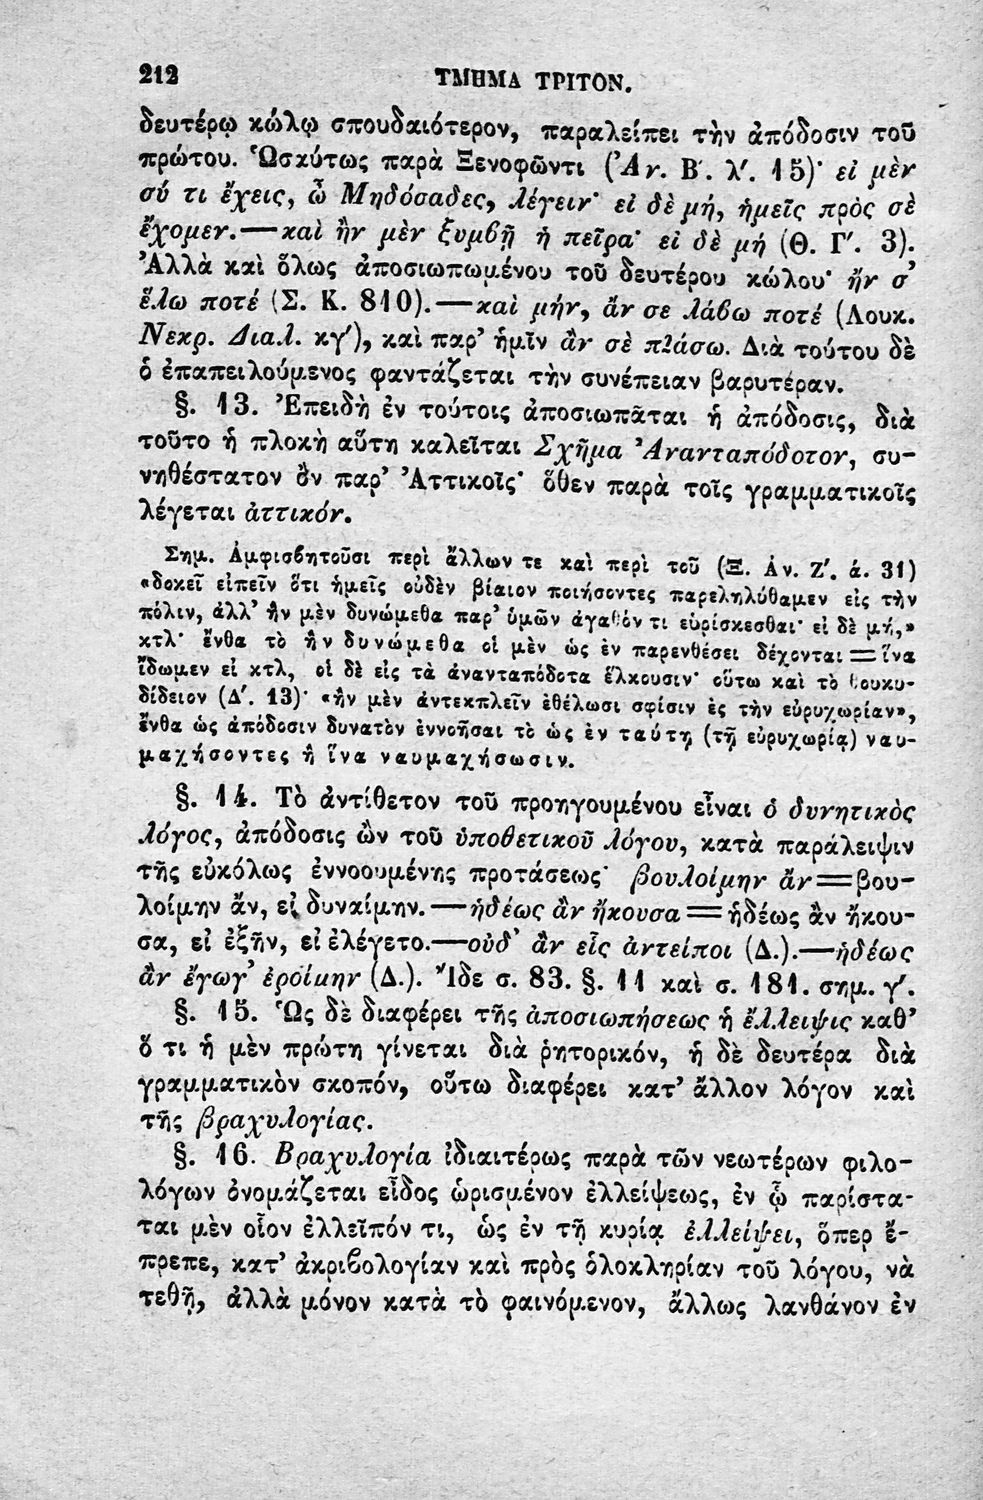 212 ΤΜΗΜΑ ΤΡΙΤΟΝ.
δευτέρῳ κώλῳ σπουδαιότερον, παραλείπει τὴν ἀπόδοσιν τοῦ
πρώτου. Ὡσαύτως παρὰ Ξενοφῶντι (Ἀν. Β΄. λ΄. 15)· εἰ μὲν
σύ τι ἔχεις, ὦ Μηδόσαδες, λέγειν· εἰ δὲ μή, ἡμεῖς πρὸς σὲ
ἔχομεν.—καὶ ἢν μὲν ξυμβῇ ἡ πεῖρα· εἰ δὲ μή (Θ. Γ΄. 3).
Ἀλλὰ καὶ ὅλως ἀποσιωπωμένου τοῦ δευτέρου κώλου· ἤν σ’
ἕλω ποτέ (Σ. Κ. 810).—καὶ μήν, ἄν σε λάβω ποτέ (Λουκ.
Νεκρ. Διαλ. κγ΄), καὶ παρ’ ἡμῖν ἂν σὲ πιάσω. Διὰ τούτου δὲ
ὁ ἐπαπειλούμενος φαντάζεται τὴν συνέπειαν βαρυτέραν.
§. 13. Ἐπειδὴ ἐν τούτοις ἀποσιωπᾶται ἡ ἀπόδοσις, διὰ
τοῦτο ἡ πλοκὴ αὕτη καλεῖται Σχῆμα Ἀνανταπόδοτον, συ-
νηθέστατον ὂν παρ’ Ἀττικοῖς· ὅθεν παρὰ τοῖς γραμματικοῖς
λέγεται ἀττικόν.
Σημ. Ἀμφισβητοῦσι περὶ ἄλλων τε καὶ περὶ τοῦ (Ξ. Ἀν. Ζ΄. ά. 31)
«δοκεῖ εἰπεῖν ὅτι ἡμεῖς οὐδὲν βίαιον ποιήσοντες παρεληλύθαμεν εἰς τὴν
πόλιν, ἀλλ’ ἢν μὲν δυνώμεθα παρ’ ὑμῶν ἀγαθόν τι εὑρίσκεσθαι· εἰ δὲ μή,»
κτλ· ἔνθα τὸ ἢν δυνώμεθα οἱ μὲν ὡς ἐν παρενθέσει δέχονται = ἵνα
ἴδωμεν εἰ κτλ, οἱ δὲ εἰς τὰ ἀνανταπόδοτα ἕλκουσιν· οὕτω καὶ τὸ Θουκυ-
δίδειον (Δ΄. 13)· «ἢν μὲν ἀντεκπλεῖν ἐθέλωσι σφίσιν ἐς τὴν εὐρυχωρίαν»,
ἔνθα ὡς ἀπόδοσιν δυνατὸν ἐννοῆσαι τὸ ὡς ἐν ταύτῃ (τῇ εὐρυχωρίᾳ) ναυ-
μαχήσοντες ἢ ἵνα ναυμαχήσωσιν.
§. 14. Τὸ ἀντίθετον τοῦ προηγουμένου εἶναι ὁ δυνητικὸς
λόγος, ἀπόδοσις ὢν τοῦ ὑποθετικοῦ λόγου, κατὰ παράλειψιν
τῆς εὐκόλως ἐννοουμένης προτάσεως· βουλοίμην ἄν=βου-
λοίμην ἄν, εἰ δυναίμην.—ἡδέως ἂν ἤκουσα=ἡδέως ἂν ἤκου-
σα, εἰ ἐξῆν, εἰ ἐλέγετο.—οὐδ’ ἂν εἷς ἀντείποι (Δ.).—ἡδέως
ἂν ἔγωγ’ ἐροίμην (Δ.). Ἴδε σ. 83. §. 11 καὶ σ. 181. σημ. γ΄.
§. 15. Ὡς δὲ διαφέρει τῆς ἀποσιωπήσεως ἡ ἔλλειψις καθ’
ὅ τι ἡ μὲν πρώτη γίνεται διὰ ῥητορικόν, ἡ δὲ δευτέρα διὰ
γραμματικὸν σκοπόν, οὕτω διαφέρει κατ’ ἄλλον λόγον καὶ
τῆς βραχυλογίας.
§. 16. Βραχυλογία ἰδιαιτέρως παρὰ τῶν νεωτέρων φιλο-
λόγων ὀνομάζεται εἶδος ὡρισμένον ἐλλείψεως, ἐν ᾧ παρίστα-
ται μὲν οἷον ἐλλεῖπόν τι, ὡς ἐν τῇ κυρίᾳ ἐλλείψει, ὅπερ ἔ-
πρεπε, κατ’ ἀκριβολογίαν καὶ πρὸς ὁλοκληρίαν τοῦ λόγου, νὰ
τεθῇ, ἀλλὰ μόνον κατὰ τὸ φαινόμενον, ἄλλως λανθάνον ἐν